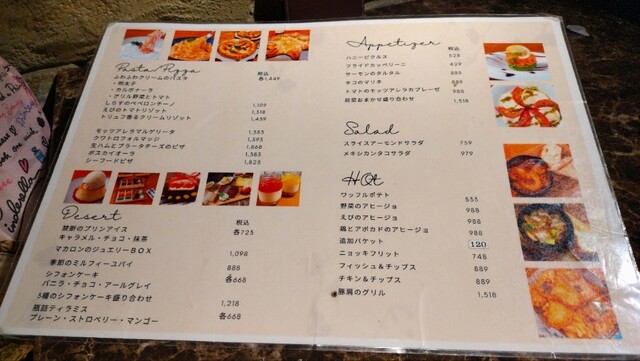 Pasta/Pizza
税込
ふわふわクリームのパスタ 各1,449
・明太子
・カルボナーラ
・グリル野菜とトマト
しらすのペペロンチーノ 1,109
えびのトマトリゾット 1,318
トリュフ香るクリームリゾット 1,439
モッツアレラマルゲリータ 1,383
クワトロフォルマッジ 1,393
生ハムとブラータチーズのピザ 1,868
ボスカイオーラ 1,583
シーフードピザ 1,823
Desert
税込
禁断のプリンアイス 各725
キャラメル・チョコ・抹茶
マカロンのジュエリーBOX 1,098
季節のミルフィーユパイ 888
シフォンケーキ 各668
バニラ・チョコ・アールグレイ
3種のシフォンケーキ盛り合わせ 1,218
瓶詰ティラミス 各668
プレーン・ストロベリー・マンゴー
Appetizer
税込
ハニーピクルス 528
フライドカッペリーニ 429
サーモンのタルタル 889
タコのマリネ 888
トマトのモッツアレラカプレーゼ 988
前菜おまかせ盛り合わせ 1,518
Salad
スライスアーモンドサラダ 759
メキシカンタコサラダ 979
Hot
ワッフルポテト 555
野菜のアヒージョ 988
えびのアヒージョ 988
鶏とアボカドのアヒージョ 988
追加バケット 120
ニョッキフリット 748
フィッシュ＆チップス 889
チキン＆チップス 889
豚肩のグリル 1,518
cinderella